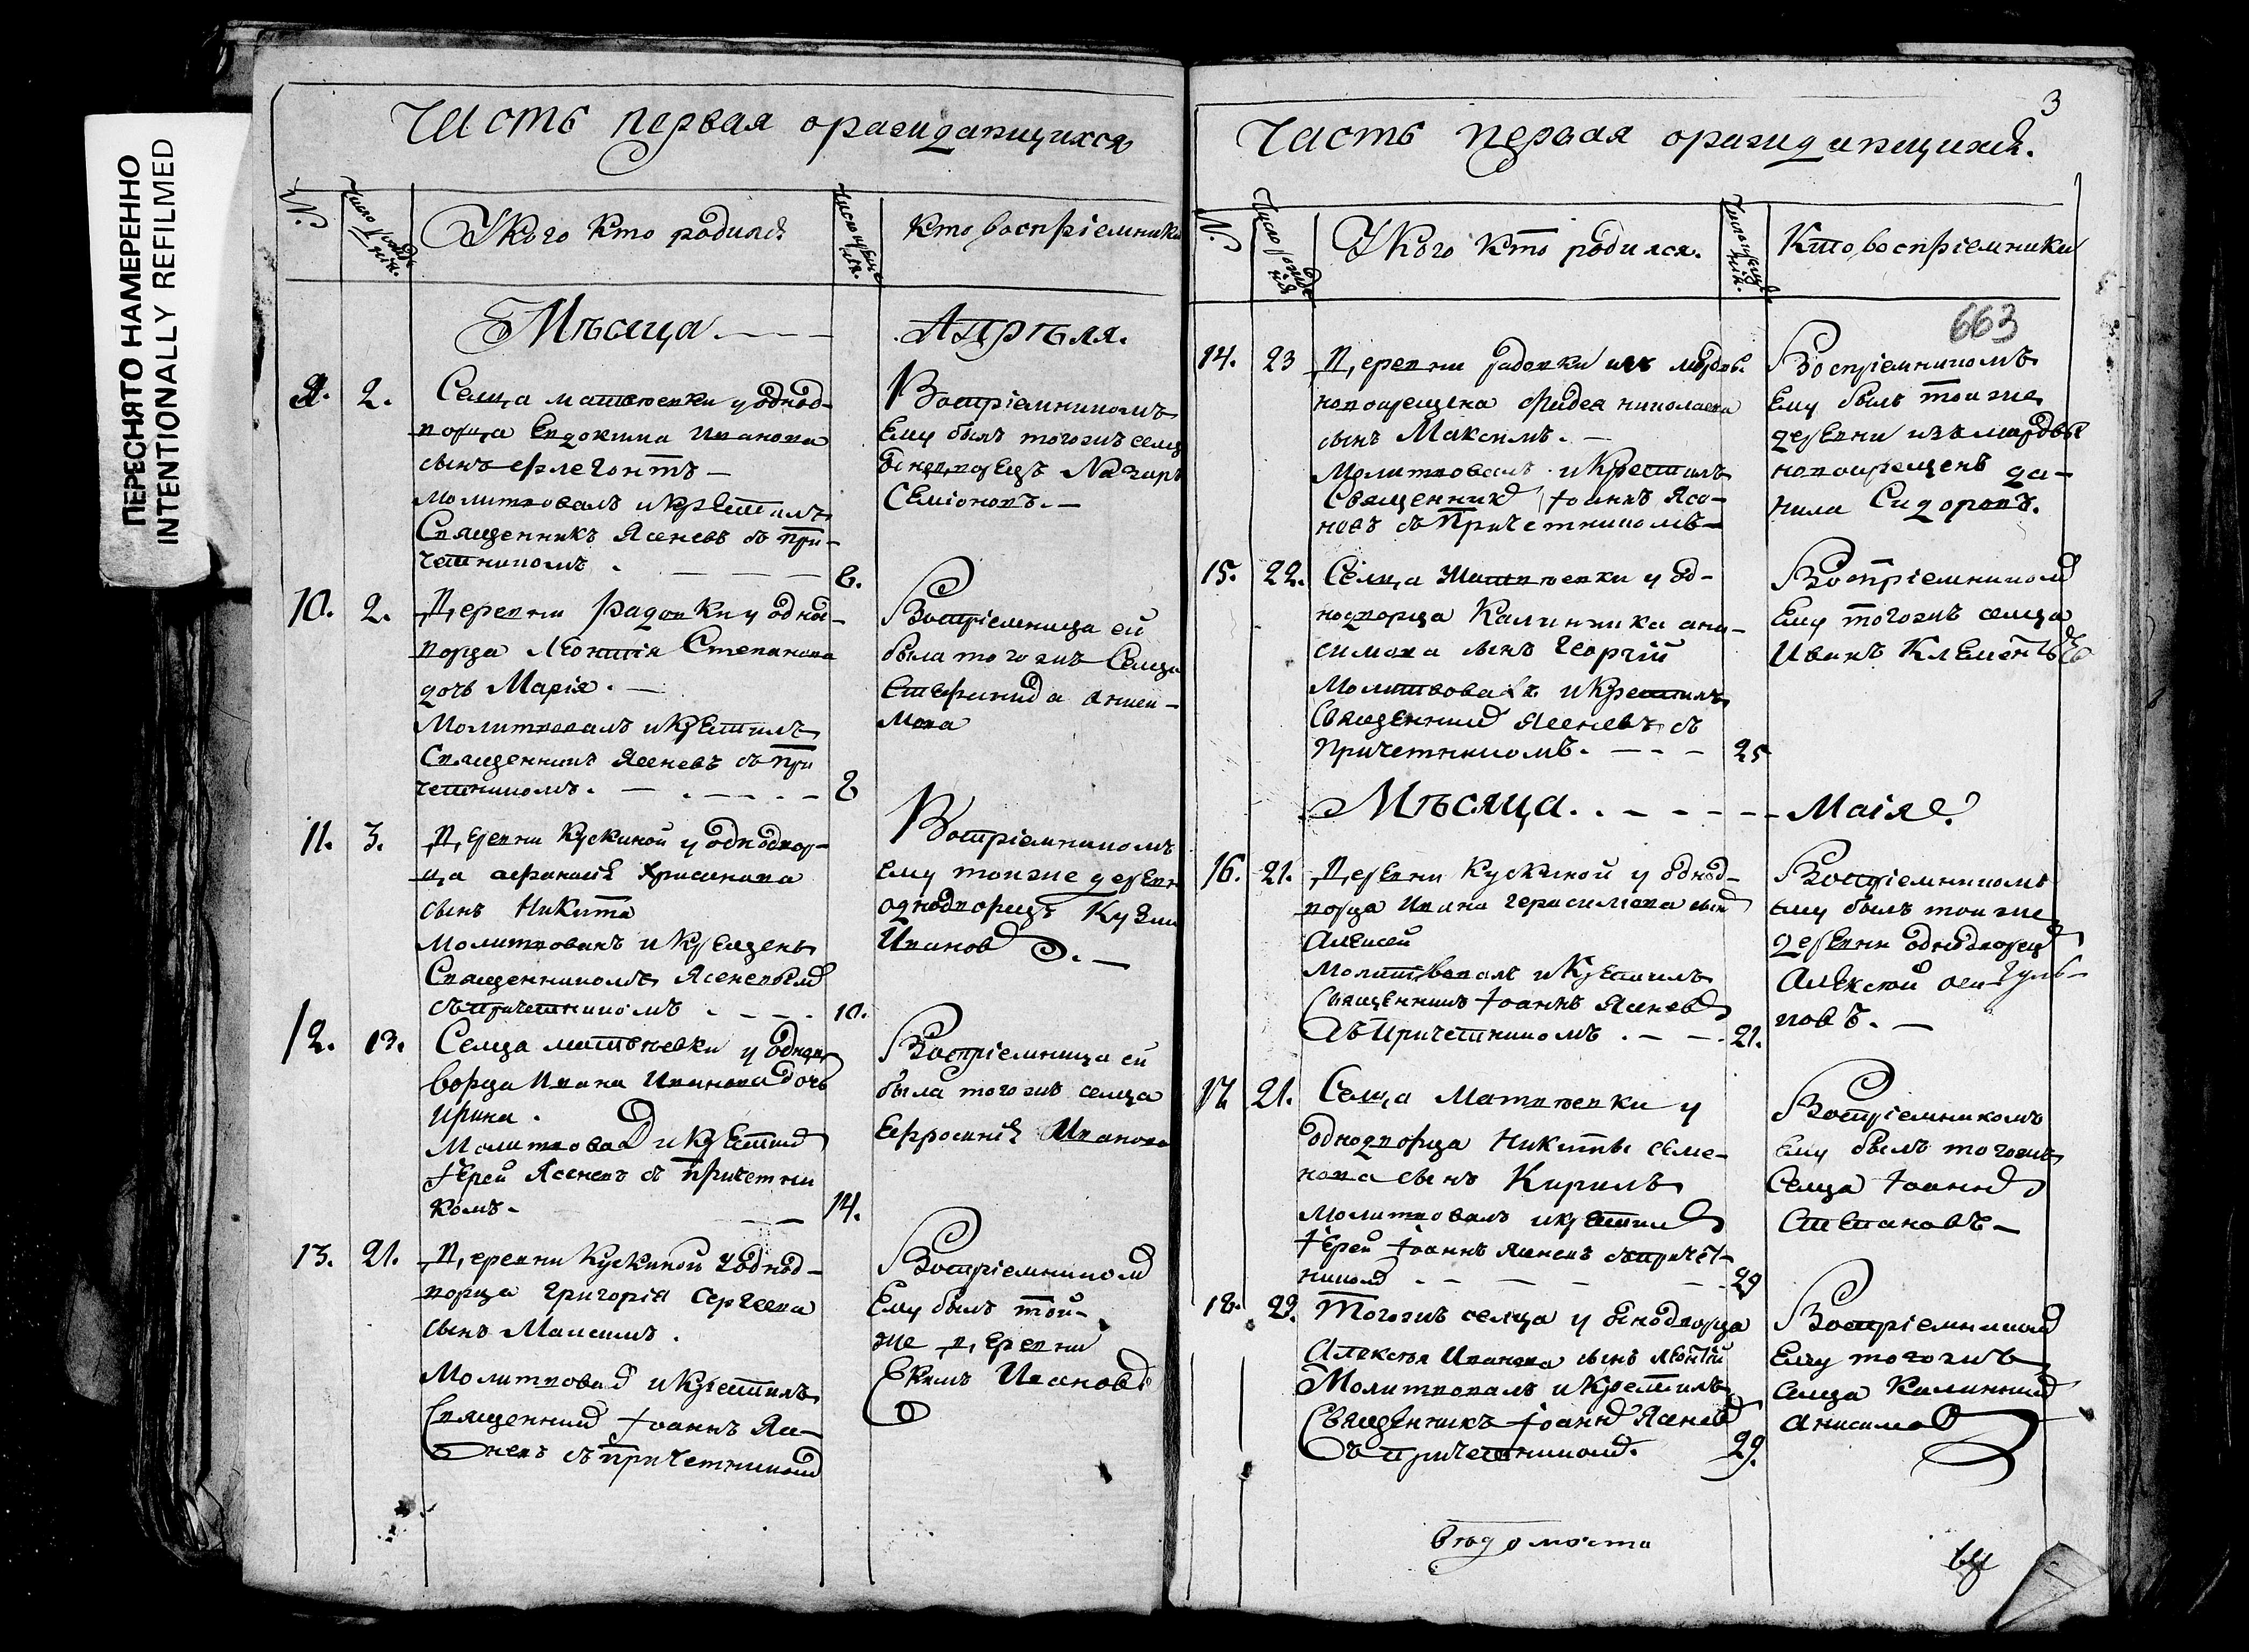 ПЕРЕСНЯТО НАМЕРЕННО
INTENTIONALLY REFILMED
Часть первая ораждающихся
№
Число рожде
нія.
Укого кто родился
Число креще
нія.
кто воспріемники
Мѣсяца
Апрѣля.
9. 2.
Селца матвѣевки у однод-
ворца Евдокима Иванова
сынъ Флегонтъ
молитвовалъ и крѣстилъ
Священникъ Ясеневъ съ при-
четникомъ
6.
Воспріемникомъ
Ему былъ тогожъ селц
однодворецъ Назаръ
Семіоновъ.
10. 2.
Деревни радовки у однод-
ворца Леонтія Степанова
дочь Марія.
Молитвовалъ и крѣстилъ
Священникъ Ясеневъ съ при
четникомъ.
Воспріемница ей
была тогожъ Селца
Степанида
11. 3.
Деревни Кускиной у однодвор-
ца
сынъ Никита
молитвованъ и крѣщенъ
Священникомъ Ясеневымъ
съ причетникомъ
10.
Воспріемникомъ
ему тоиже деревн
однодворецъ Кузма
Иванов
12. 13.
Селца матвѣевки у однод
ворца Ивана Иванова дочь
Ирина.
Молитвовалъ и крѣстилъ
Іерей Ясеневъ съ причетни
комъ
14.
Воспріемница ей
была тогожъ селца
Ефросинія Иванова
13. 21.
Деревни Кускиной у однод-
ворца Григорія Сергеева
сынъ Максимъ.
Молитвовалъ и крѣстилъ
Священникъ Іоаннъ Ясе-
невъ съ причетникомъ
Воспріемникомъ
Ему былъ той-
же деревни
Екимъ Ивановъ
3
Часть первая ораждающихся.
№
Число рожде
нія
Укого кто родился.
Число креще
нія.
Кто воспріемники
663
14. 23
Деревни радовки изъ мордвы
новокрещена Фадея николаева
сынъ Максимъ.
Молитвовалъ и крестилъ
Священникъ Іоаннъ Ясе-
невъ съ Причетникомъ
Воспріемникомъ
Ему былъ тоиже
деревни изъ мордвы
новокрещенъ да-
нила Сидоровъ.
15. 22.
Селца Матвѣевки у од-
нодворца Калинника ани-
симова сынъ Георгій
Молитвовалъ и крестилъ
Священникъ Ясеневъ съ
Причетникомъ.
25
Воспріемникомъ
Ему тогожъ селца
Иванъ Клементьев
Мѣсяца
Маія
16. 21.
Деревни Кускиной у однод-
ворца Ивана Герасимова сынъ
Алексей
Молитвовалъ и крѣстилъ
Священникъ Іоаннъ Ясеневъ
съ Причетникомъ.
21.
Воспріемникомъ
Ему былъ тоиже
деревни однодворецъ
Алексей
новъ.
17 21.
Селца Матвѣевки у
однодворца Никиты семе-
нова сынъ Кирилъ
Молитвовалъ и крѣстилъ
Іерей Іоаннъ Ясеневъ съ причет-
никомъ
29
Воспріемникомъ
Ему былъ тогожъ
Селца Іоаннъ
Степановъ
18. 29.
Тогожъ селца у однодворца
Алексѣя Иванова сынъ Леонтій
Молитвовалъ и крестилъ
Священникъ Іоаннъ Ясеневъ
съ причетникомъ.
29.
Воспріемникомъ
Ему тогожъ
Селца Калинникъ
анисимовъ
вѣдомости